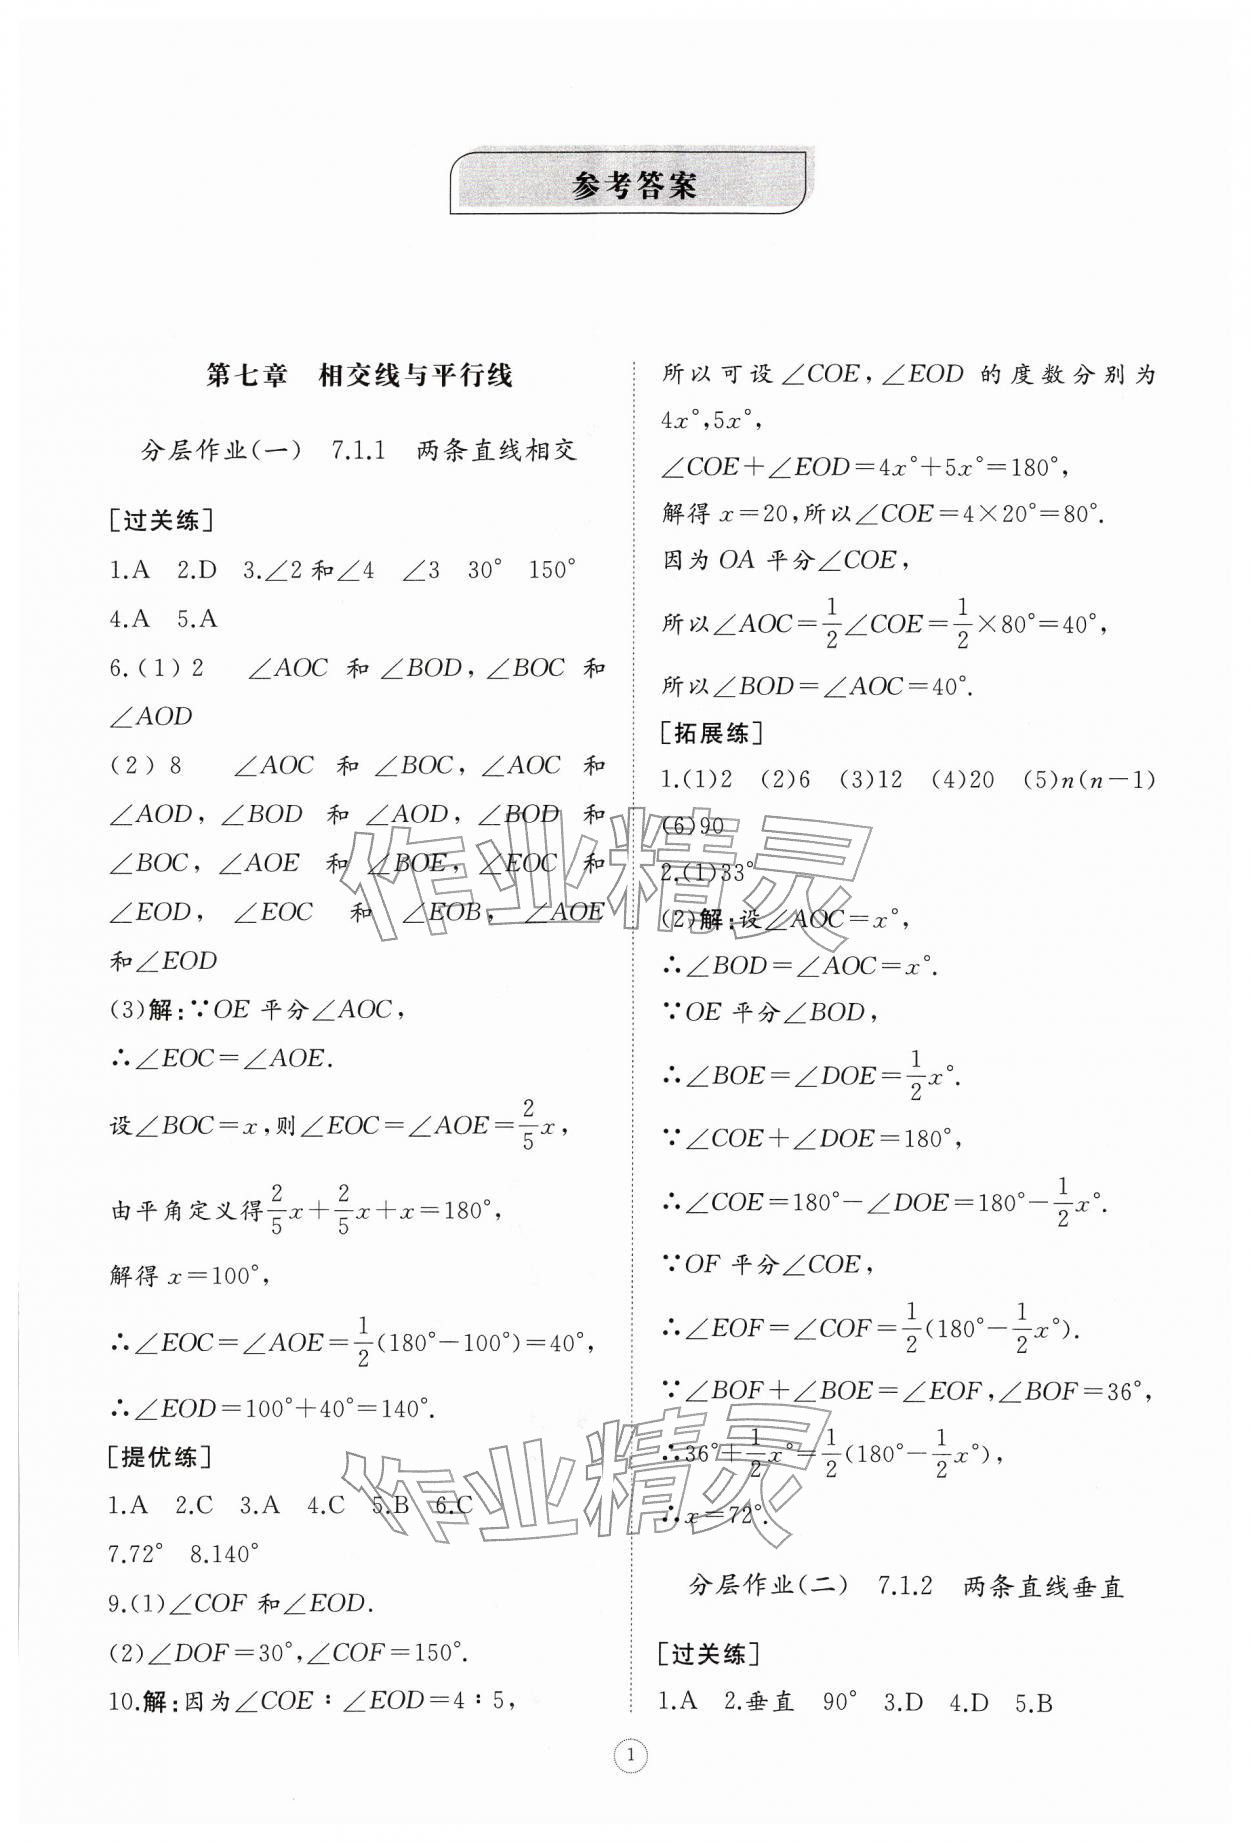 参考答案
第七章　相交线与平行线
分层作业(一)　7.1.1　两条直线相交
[过关练]
1.A　2.D　3.∠2和∠4　∠3　30°　150°
4.A　5.A
6.(1)2　∠AOC 和 ∠BOD,∠BOC 和
∠AOD
(2)8　∠AOC 和 ∠BOC,∠AOC 和
∠AOD,∠BOD 和 ∠AOD,∠BOD 和
∠BOC,∠AOE 和 ∠BOE,∠EOC 和
∠EOD,∠EOC 和 ∠EOB,∠AOE
和∠EOD
(3)解:∵OE 平分∠AOC,
∴∠EOC=∠AOE.
设∠BOC=x,则∠EOC=∠AOE=2/5x,
由平角定义得2/5x+2/5x+x=180°,
解得 x=100°,
∴∠EOC=∠AOE=1/2(180°-100°)=40°,
∴∠EOD=100°+40°=140°.
[提优练]
1.A　2.C　3.A　4.C　5.B　6.C
7.72°　8.140°
9.(1)∠COF 和∠EOD.
(2)∠DOF=30°,∠COF=150°.
10.解:因为∠COE∶∠EOD=4∶5,
所以可设∠COE,∠EOD 的度数分别为
4x°,5x°,
∠COE+∠EOD=4x°+5x°=180°,
解得 x=20,所以∠COE=4×20°=80°.
因为 OA 平分∠COE,
所以∠AOC=1/2∠COE=1/2×80°=40°,
所以∠BOD=∠AOC=40°.
[拓展练]
1.(1)2　(2)6　(3)12　(4)20　(5)n(n-1)
(6)90
2.(1)33°
(2)解:设∠AOC=x°,
∴∠BOD=∠AOC=x°.
∵OE 平分∠BOD,
∴∠BOE=∠DOE=1/2x°.
∵∠COE+∠DOE=180°,
∴∠COE=180°-∠DOE=180°-1/2x°.
∵OF 平分∠COE,
∴∠EOF=∠COF=1/2(180°-1/2x°).
∵∠BOF+∠BOE=∠EOF,∠BOF=36°,
∴36°+1/2x°=1/2(180°-1/2x°),
∴x=72°.
分层作业(二)　7.1.2　两条直线垂直
[过关练]
1.A　2.垂直　90°　3.D　4.D　5.B
1
作业精灵
作业精灵